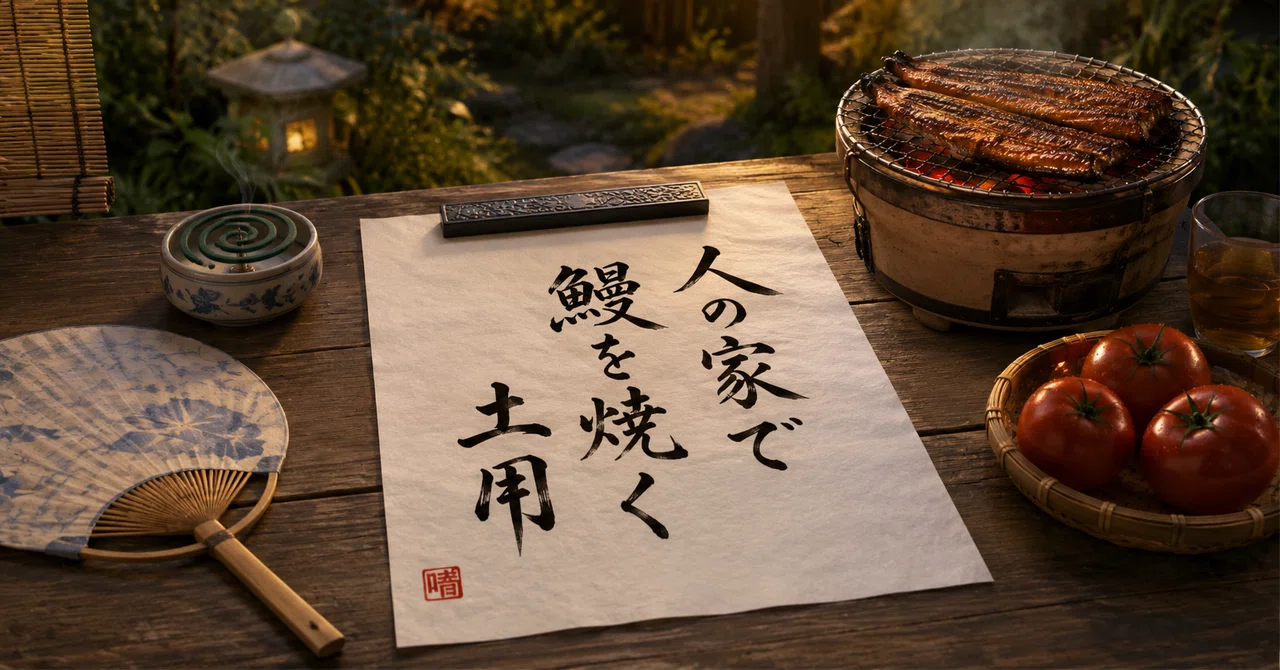 人の家で
鰻を焼く
土用
嗜